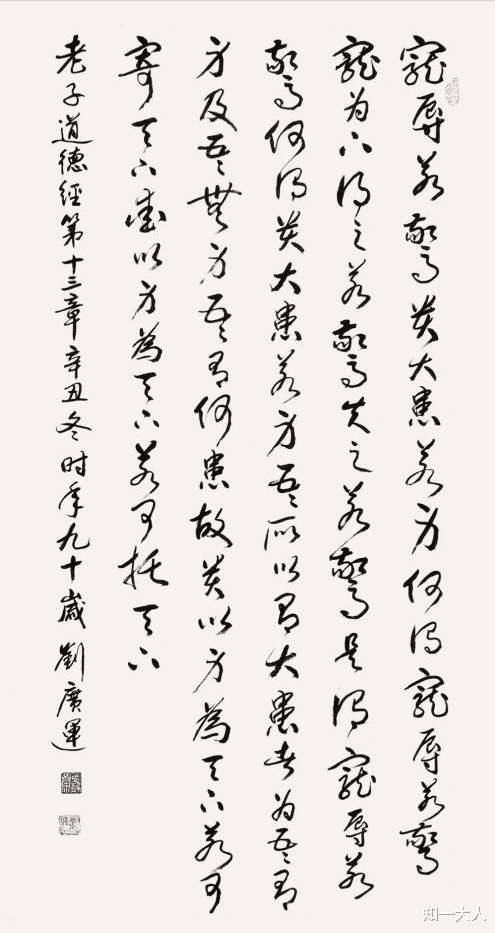 寵辱若驚貴大患若身何謂寵辱若驚
寵為下得之若驚失之若驚是謂寵辱若
驚何謂貴大患若身吾所以有大患者為吾有
身及吾無身吾有何患故貴以身為天下若可
寄天下愛以身為天下若可托天下
老子道德經第十三章辛丑冬时年九十歲劉廣運
知一大人